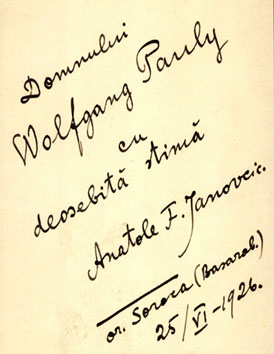 Domnului
Wolfgang Pauly
cu
deosebită stimă
Anatole F. Janovcic.
or. Soroca (Basarab.)
25/VI-1926.